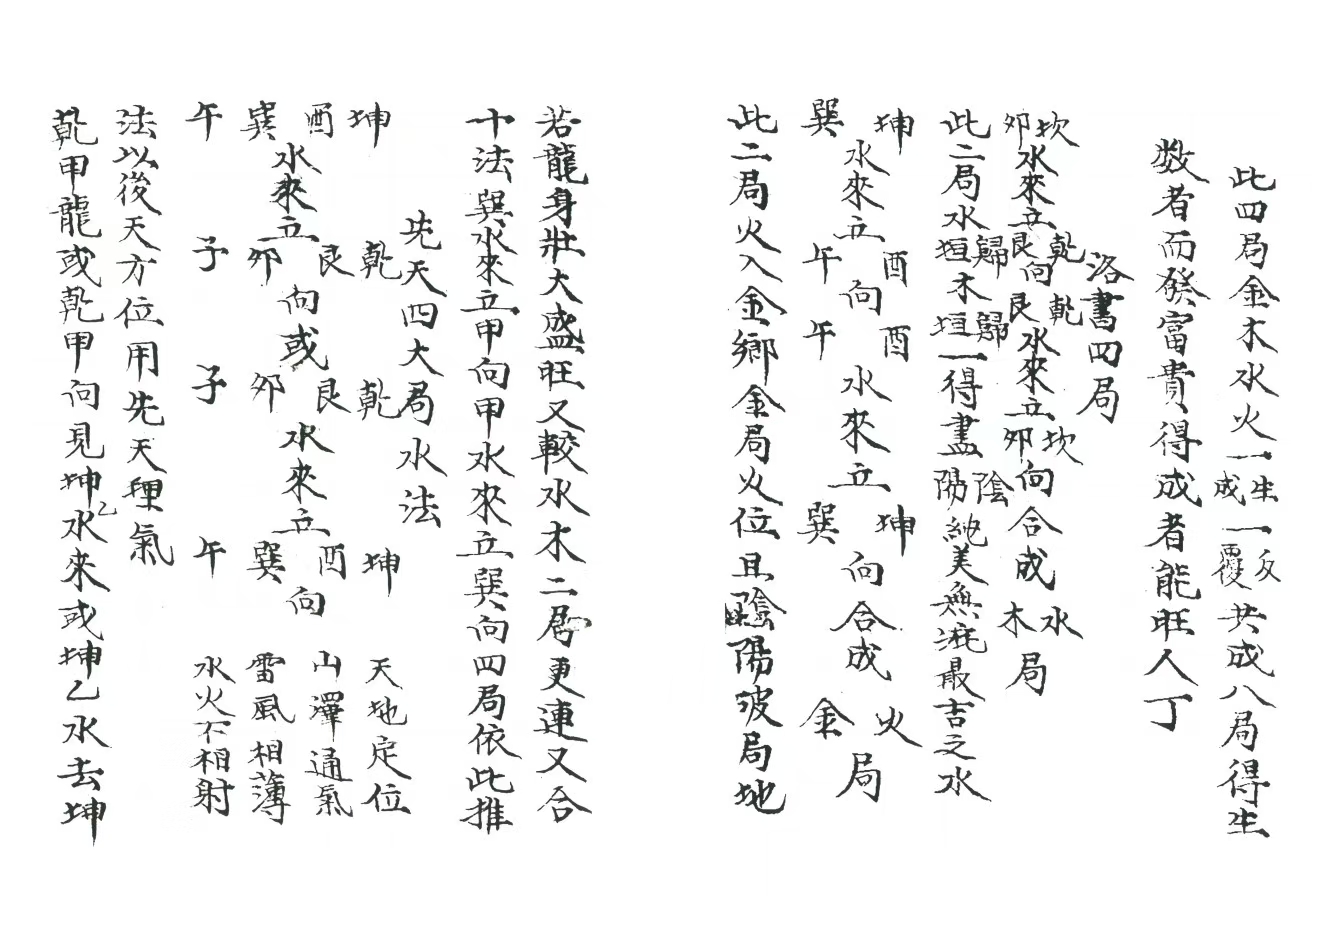 此四局金木水火一生成一反覆共成八局得生
数者而發富貴得成者能旺人丁
洛書四局
坎卯水來立乾艮向乾艮水來立坎卯向合成水木局
此二局水歸垣木歸垣一得盡陰陽純美無疵最吉之水
坤巽水來立酉午向酉午水來立坤巽向合成火金局
此二局火入金鄉金局火位且陰陽破局地
若龍身壯大盛旺又較水木二局更連又合
十法巽水來立甲向甲水來立巽向四局依此推
先天四大局水法
坤酉巽午水來立乾艮卯子向或乾艮卯子水來立坤酉巽午向
天地定位
山澤通氣
雷風相薄
水火不相射
法以後天方位用先天理氣
乾甲龍或乾甲向見坤乙水來或坤乙水去坤